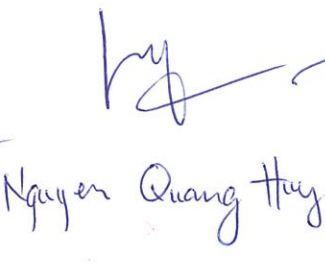 Nguyen Quang Huy